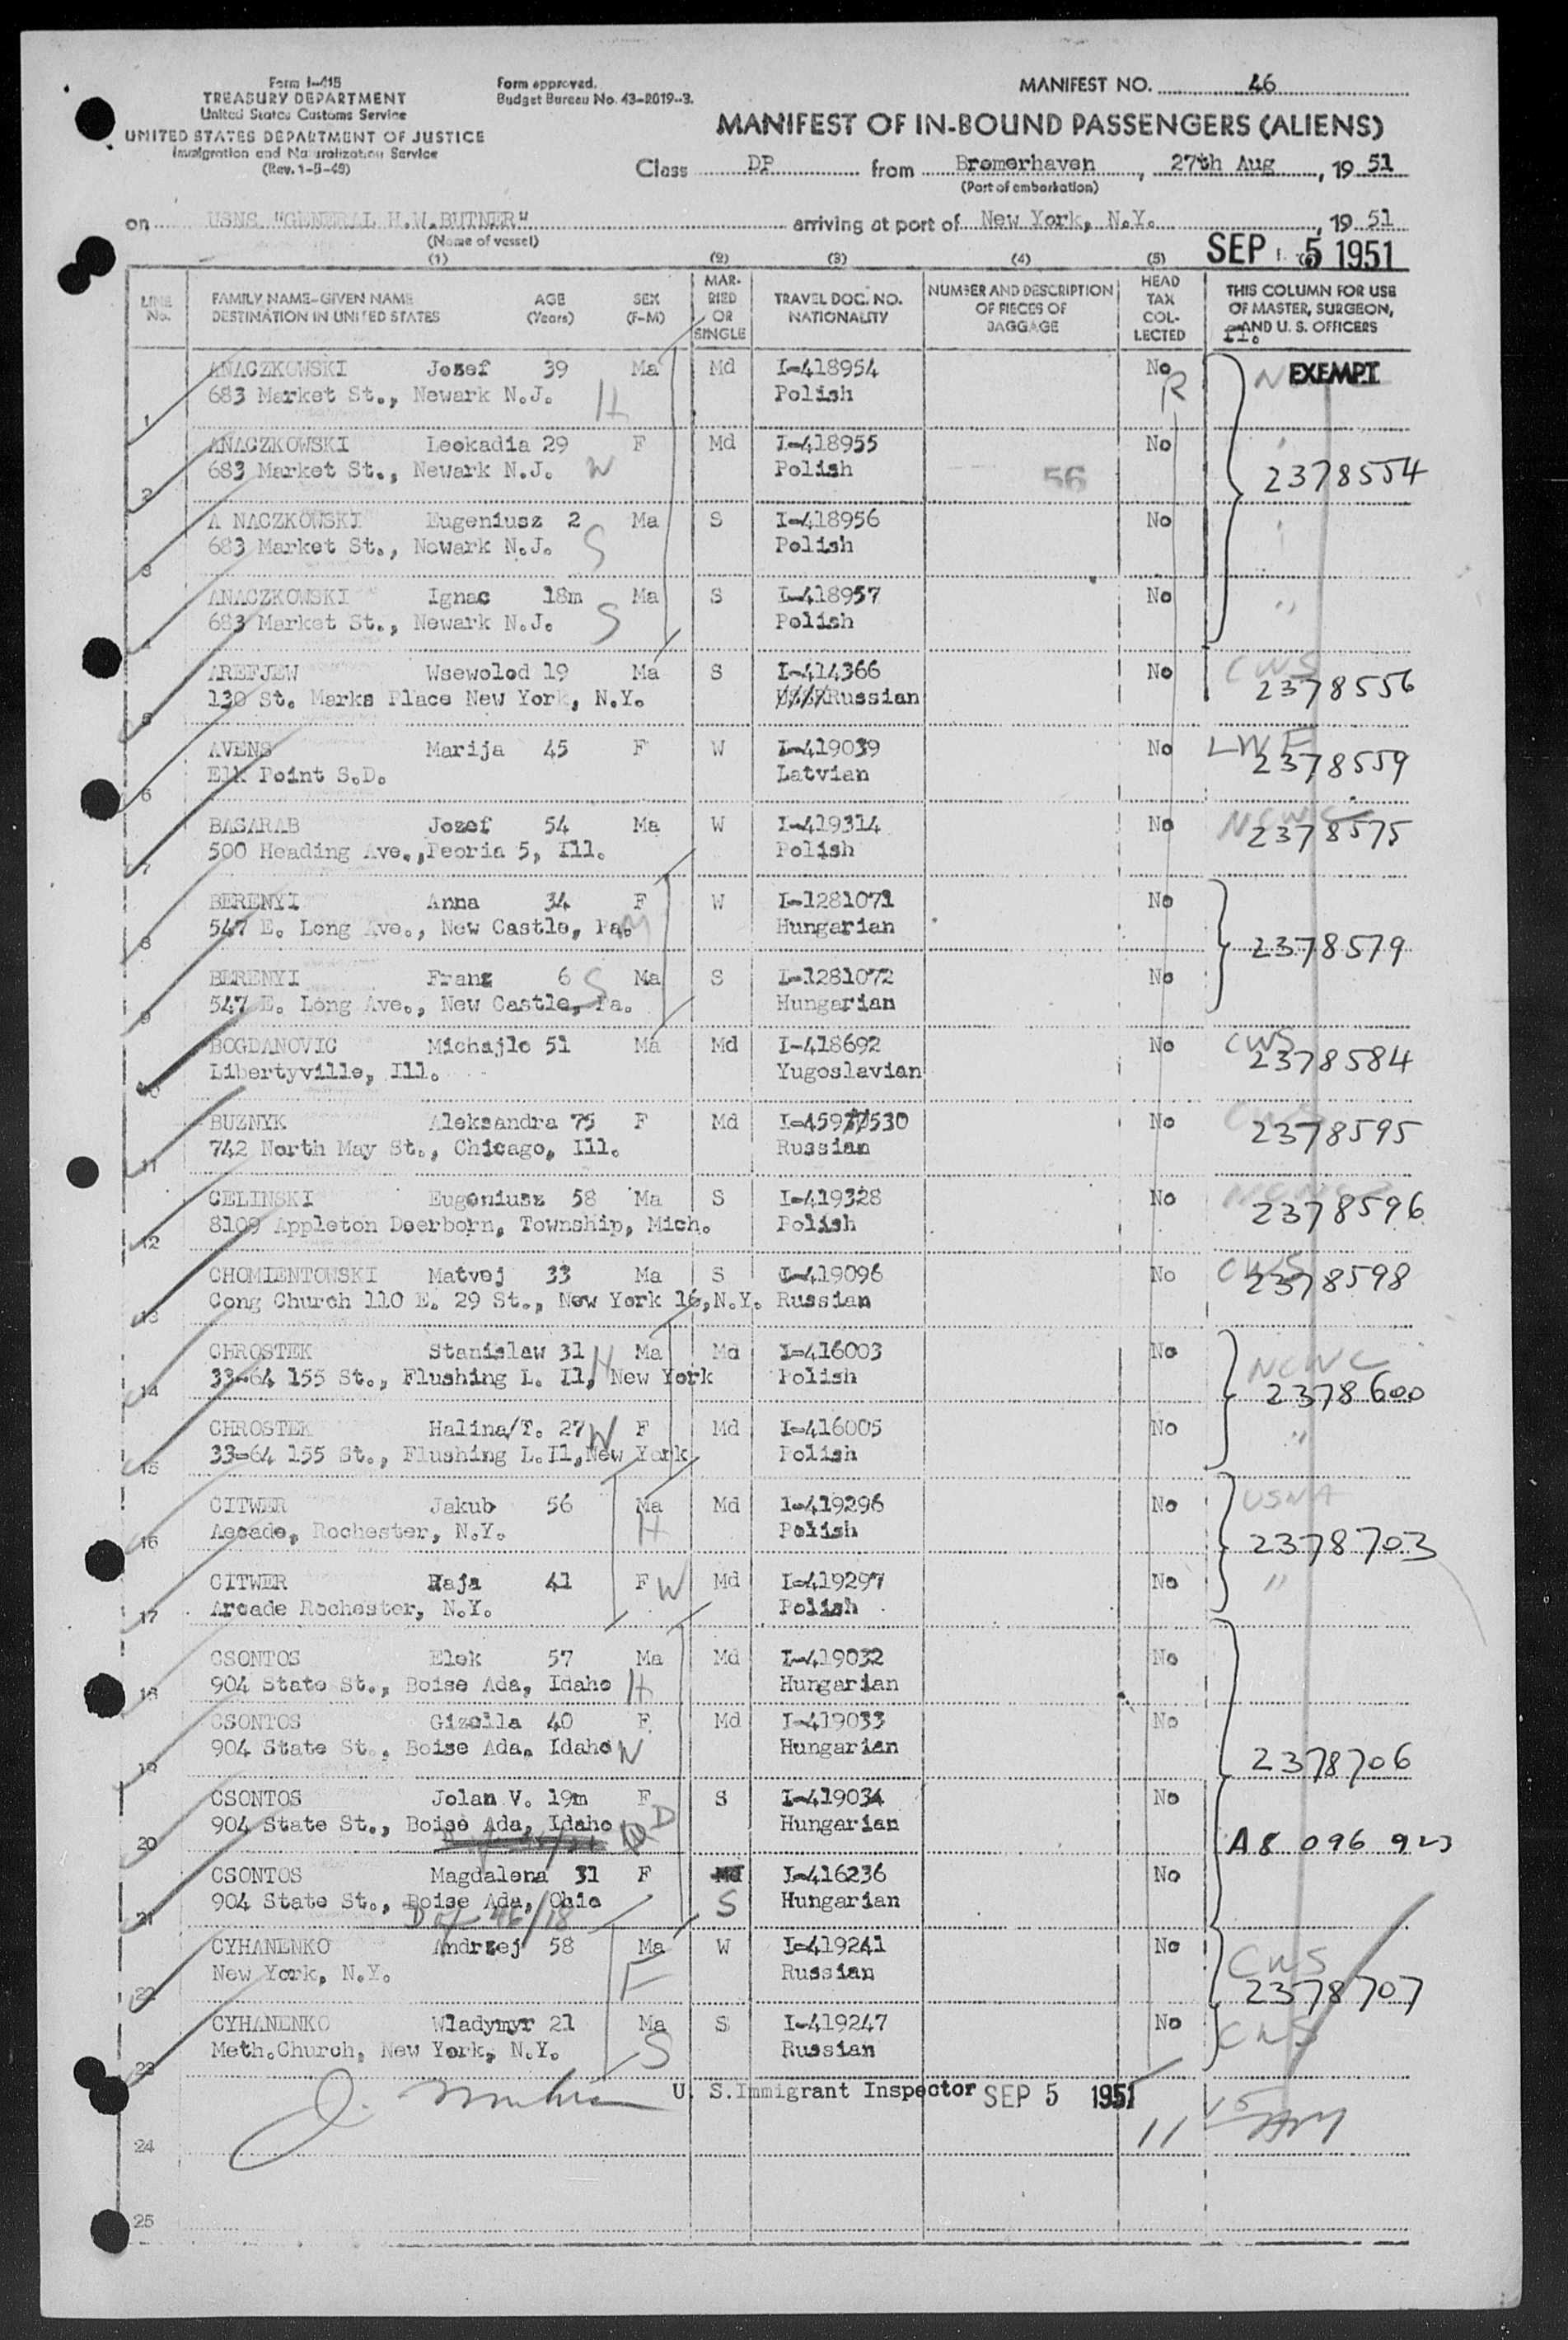 Form I-418
TREASURY DEPARTMENT
United States Customs Service
UNITED STATES DEPARTMENT OF JUSTICE
Immigration and Naturalization Service
(Rev. 1-5-48)
Form approved.
Budget Bureau No. 43-R019-3.
MANIFEST NO. 46
MANIFEST OF IN-BOUND PASSENGERS (ALIENS)
Class DP from Bremerhaven, 27th Aug, 19 51
(Port of embarkation)
on USNS "GENERAL H.W.BUTNER" arriving at port of New York, N.Y., 19 51
(Name of vessel)
SEP 5 1951
(1) (2) (3) (4) (5)
LINE No. FAMILY NAME-GIVEN NAME DESTINATION IN UNITED STATES AGE (Years) SEX (F-M) MARRIED OR SINGLE TRAVEL DOC. NO. NATIONALITY NUMBER AND DESCRIPTION OF PIECES OF BAGGAGE HEAD TAX COLLECTED THIS COLUMN FOR USE OF MASTER, SURGEON, AND U. S. OFFICERS
1 ANACZKOWSKI Josef 39 Ma Md I-418954 No R EXEMPT
683 Market St., Newark N.J. H Polish
2 ANACZKOWSKI Leokadia 29 F Md I-418955 No "
683 Market St., Newark N.J. W Polish 56 2378554
3 A NACZKOWSKI Eugeniusz 2 Ma S I-418956 No "
683 Market St., Newark N.J. S Polish
4 ANACZKOWSKI Ignac 18m Ma S I-418957 No "
683 Market St., Newark N.J. S Polish
5 AREFJEW Wsewolod 19 Ma S I-414366 No CWS
130 St. Marks Place New York, N.Y. Russian 2378556
6 AVENS Marija 45 F W I-419039 No LWF
Elk Point S.D. Latvian 2378559
7 BASARAB Jozef 54 Ma W I-419314 No NCWC
500 Heading Ave.,Peoria 5, Ill. Polish 2378575
8 BERENYI Anna 34 F W I-1281071 No
547 E. Long Ave., New Castle, Pa. M Hungarian 2378579
9 BERENYI Franz 6 S Ma S I-1281072 No
547 E. Long Ave., New Castle, Pa. Hungarian
10 BOGDANOVIC Michajlo 51 Ma Md I-418692 No CWS
Libertyville, Ill. Yugoslavian 2378584
11 BUZNYK Aleksandra 75 F Md No CWS
742 North May St., Chicago, Ill. Russian 2378595
12 CELINSKI Eugeniusz 58 Ma S I-419328 No NCWC
8109 Appleton Deerborn, Township, Mich. Polish 2378596
13 CHOMIENTOWSKI Matvej 33 Ma S I-419096 No CWS
Cong Church 110 E. 29 St., New York 16,N.Y. Russian 2378598
14 CHROSTEK Stanislaw 31 H Ma Md I-416003 No NCWC
33-64 155 St., Flushing L. Il, New York Polish 2378600
15 CHROSTEK Halina/T. 27 W F Md I-416005 No "
33-64 155 St., Flushing L.Il,New York Polish
16 CITWER Jakub 56 Ma Md I-419296 No USNA
Aecade, Rochester, N.Y. H Polish 2378703
17 CITWER Raja 41 F W Md I-419297 No "
Arcade Rochester, N.Y. Polish
18 CSONTOS Elek 57 Ma Md I-419032 No
904 State St., Boise Ada, Idaho H Hungarian
19 CSONTOS Gizella 40 F Md I-419033 No
904 State St., Boise Ada, Idaho W Hungarian 2378706
20 CSONTOS Jolan V. 19m F S I-419034 No
904 State St., Boise Ada, Idaho D Hungarian A8 096 923
21 CSONTOS Magdalena 31 F Md I-416236 No
904 State St., Boise Ada, Ohio S Hungarian
46/18
22 CYHANENKO Andrzej 58 Ma W I-419241 No CWS
New York, N.Y. F Russian 2378707
23 CYHANENKO Wladymyr 21 Ma S I-419247 No CWS
Meth.Church, New York, N.Y. S Russian
U. S.Immigrant Inspector SEP 5 1951
24 11
25